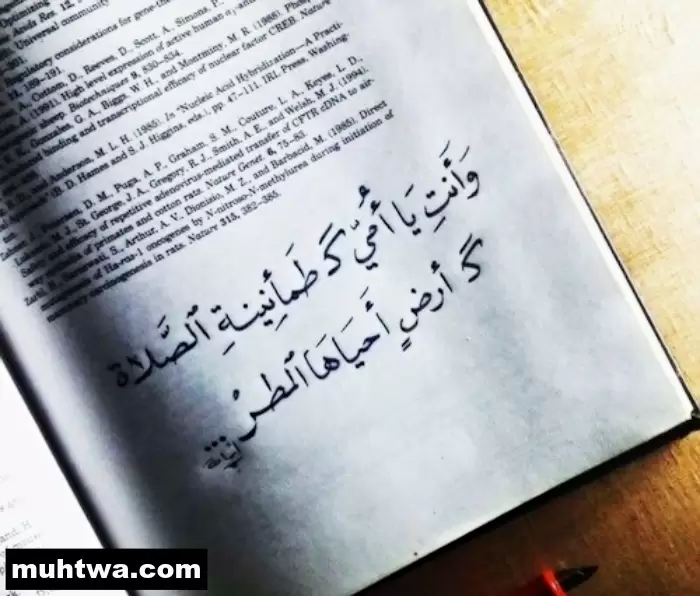 Optimizing
Acids Res. 12,
Universal community
ulatory considerations for gene-the
191.
, 189–191.
A., Cottom, D., Reeves, D., Scott, A., Simons, P.,
A. (1991). High level expression of active human
sheep. Biotechniques 9, 830–834.
K. K., Gonzales, G. A., Biggs, W. H., and Montminy, M. R. (1988). Phos
binding and transcriptional efficacy of nuclear factor CREB. Nature
B. D., and Anderson, M. L. H. (1985). In "Nucleic Acid Hybridization—A Practi-
(B. D. Hames and S. J. Higgins, eds.), pp. 47–111. IRL Press, Washing-
J., Peterson, D. M., Puga, A. P., Graham, S. M., Couture, L. A., Keyes, L. D.,
M. J., St. George, J. A., Gregory, R. J., Smith, A. E., and Welsh, M. J. (1994).
Safety and efficacy of repetitive adenovirus-mediated transfer of CFTR cDNA to air-
of primates and cotton rats. Nature Genet. 6, 75–83.
S., Arthur, A. V., Dionisio, M. Z., and Barbacid, M. (1985). Direct
of Ha-ras-1 oncogenes by N-nitroso-N-methylurea during initiation of
carcinogenesis in rats. Nature 315, 382–385.
وَأَنتِ يَا أُمّي كَـ طَمَأنِينةِ ٱلصَّلاة
كَـ أرضٍ أَحيَاهَا ٱلمطرُ
and, H
muhtwa.com